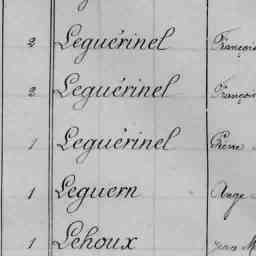 2 Leguérinel François
2 Leguérinel François
1 Leguérinel Pierre
1 Leguern Ange
1 Lehoux Jean M